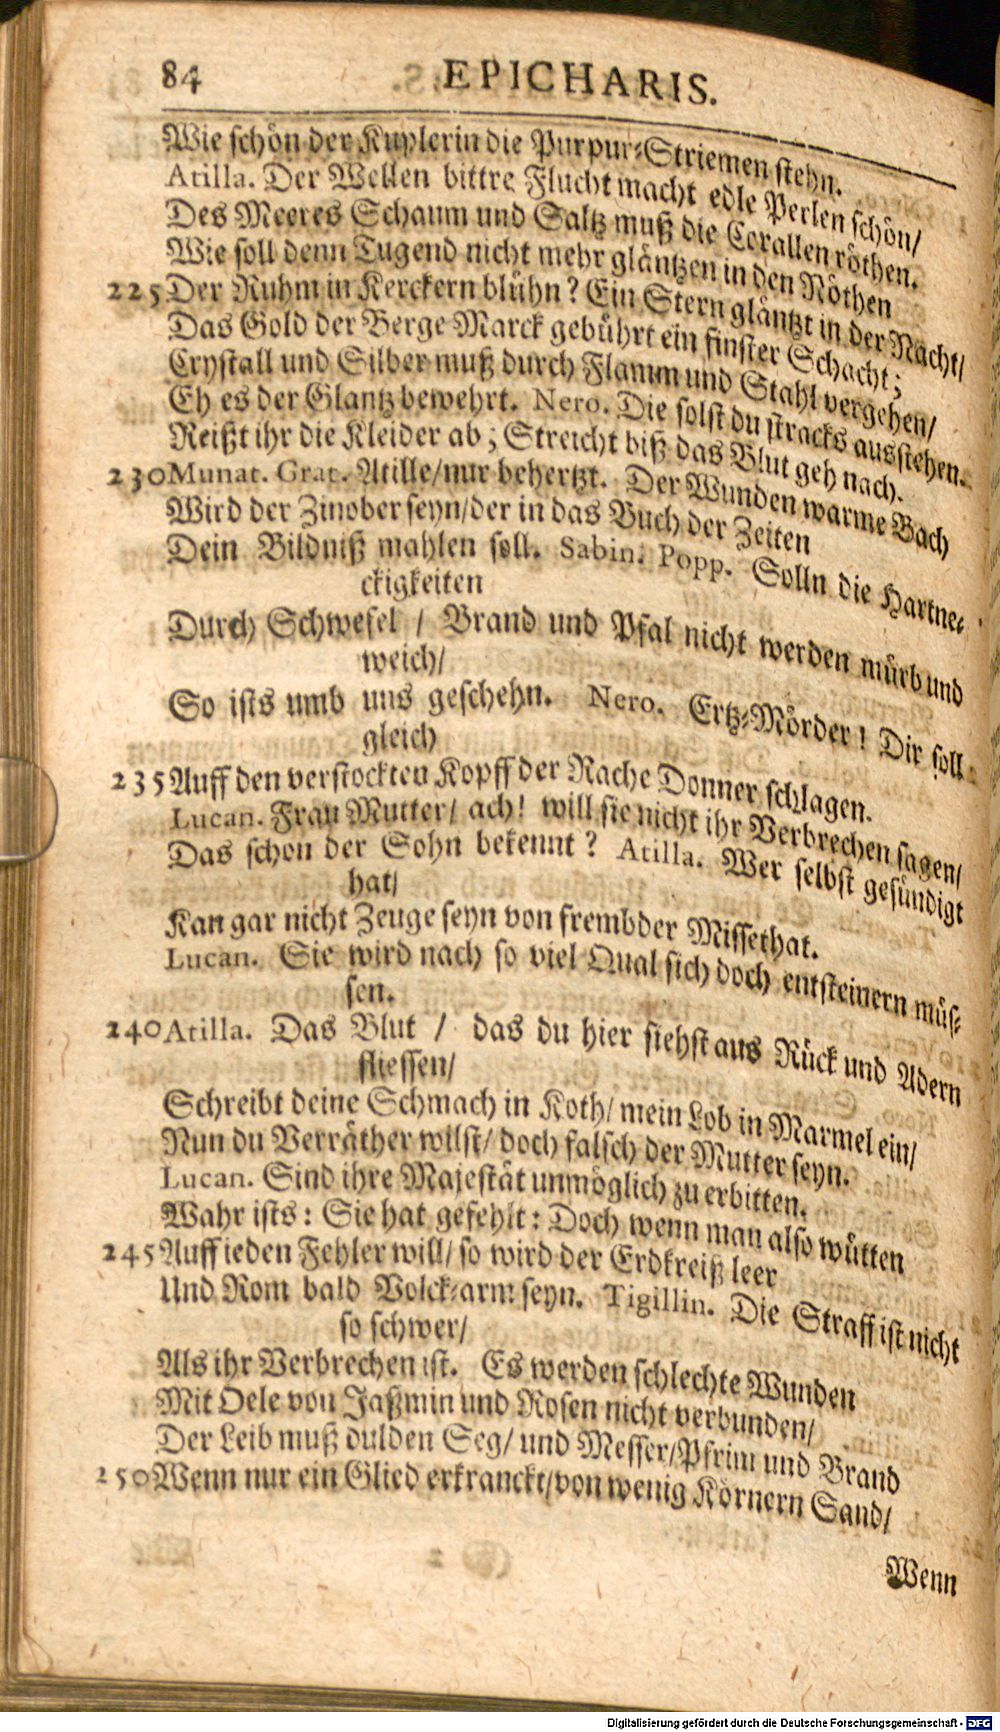 84 EPICHARIS.
Wie schön der Kuplerin die Purpur-Striemen stehn.
Atilla. Der Wellen bittre Flucht macht edle Perlen schön/
Des Meeres Schaum und Saltz muß die Corallen röthen.
Wie soll denn Tugend nicht mehr gläntzen in den Nöthen
225 Der Ruhm in Kerckern blühn? Ein Stern gläntzt in der Nacht/
Das Gold der Berge Marck gebührt ein finster Schacht;
Crystall und Silber muß durch Flamm und Stahl vergehen/
Eh es der Glantz bewehrt. Nero. Die solst du stracks ausstehen.
Reißt ihr die Kleider ab; Streicht biß das Blut geh nach.
230 Munat. Grat. Atille/nur behertzt. Der Wunden warme Bach
Wird der Zinober seyn/der in das Buch der Zeiten
Dein Bildniß mahlen soll. Sabin. Popp. Solln die Hartne-
ckigkeiten
Durch Schwefel / Brand und Pfal nicht werden mürb und
weich/
So ists umb uns geschehn. Nero. Ertz-Mörder! Dir soll
gleich
235 Auff den verstockten Kopff der Rache Donner schlagen.
Lucan. Frau Mutter/ ach! will sie nicht ihr Verbrechen sagen/
Das schon der Sohn bekennt? Atilla. Wer selbst gesündigt
hat/
Kan gar nicht Zeuge seyn von frembder Missethat.
Lucan. Sie wird nach so viel Qual sich doch entsteinern müs-
sen.
240 Atilla. Das Blut / das du hier siehst aus Rück und Adern
fliessen/
Schreibt deine Schmach in Koth/ mein Lob in Marmel ein/
Nun du Verräther wilst/ doch falsch der Mutter seyn.
Lucan. Sind ihre Majestät unmöglich zu erbitten.
Wahr ists: Sie hat gefehlt: Doch wenn man also wütten
245 Auff ieden Fehler will/ so wird der Erdkreiß leer
Und Rom bald Volck-arm seyn. Tigillin. Die Straff ist nicht
so schwer/
Als ihr Verbrechen ist. Es werden schlechte Wunden
Mit Oele von Jaßmin und Rosen nicht verbunden/
Der Leib muß dulden Seg/ und Messer/Pfrim und Brand
250 Wenn nur ein Glied erkranckt/von wenig Körnern Sand/
Wenn
Digitalisierung gefördert durch die Deutsche Forschungsgemeinschaft - DFG